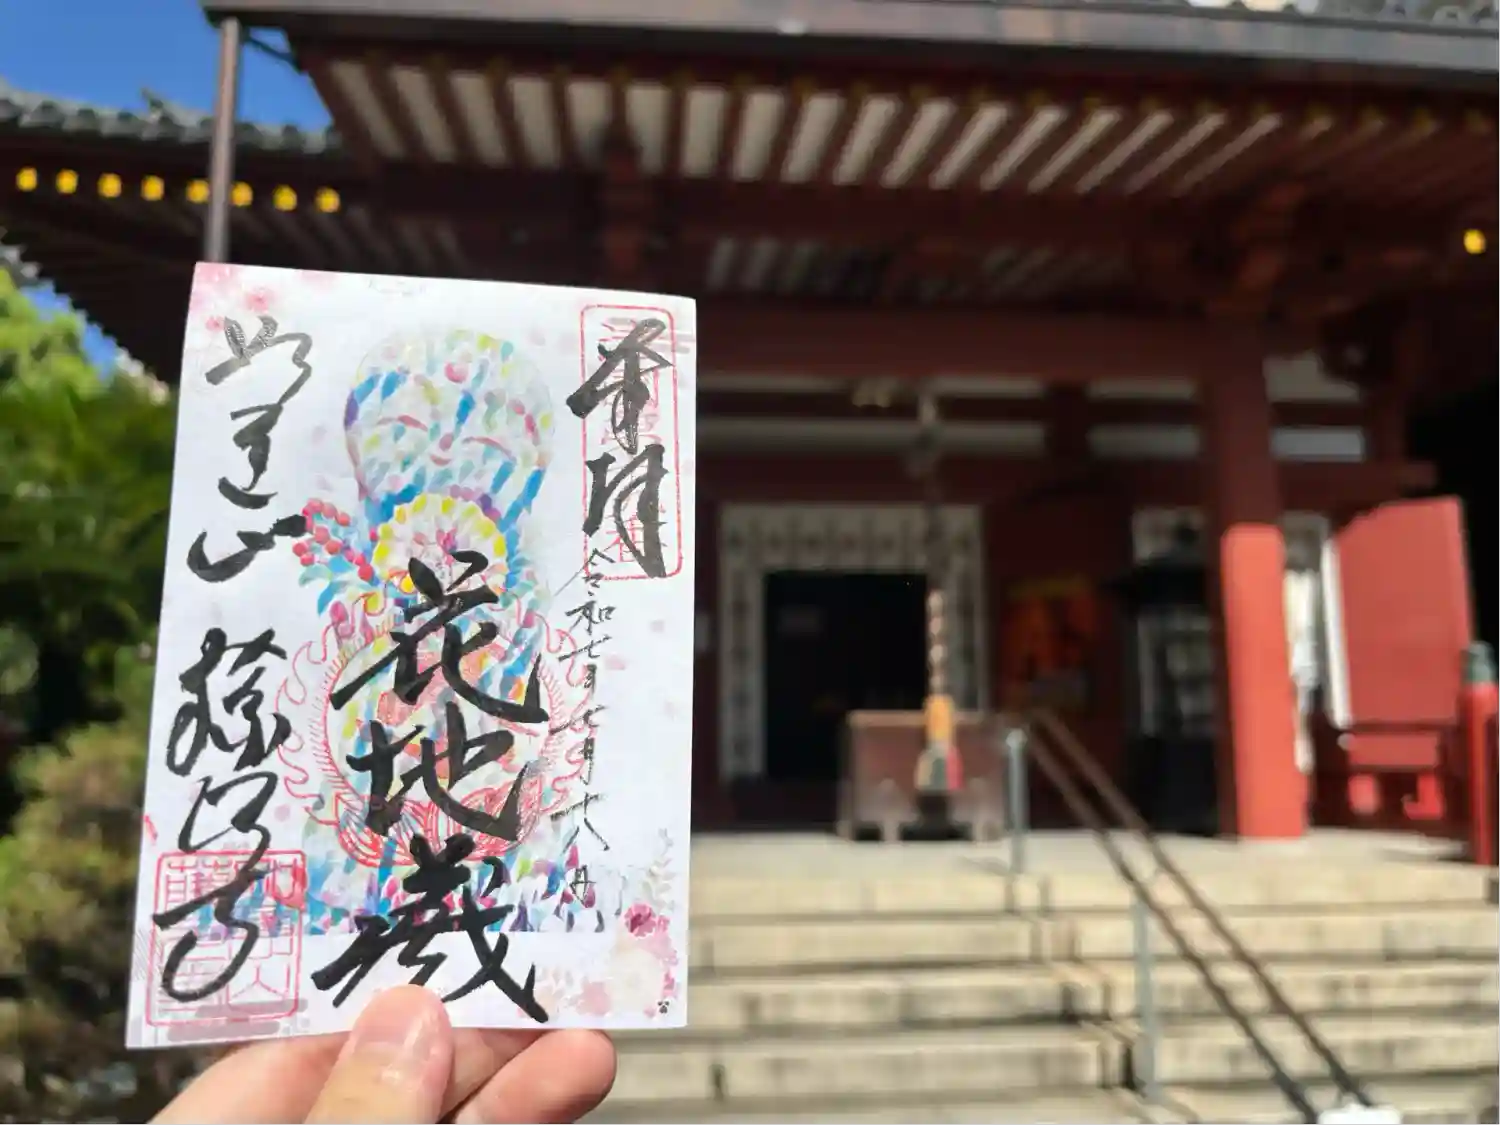 奉拝
令和七年七月十八日
花地蔵
如意山 藤次寺